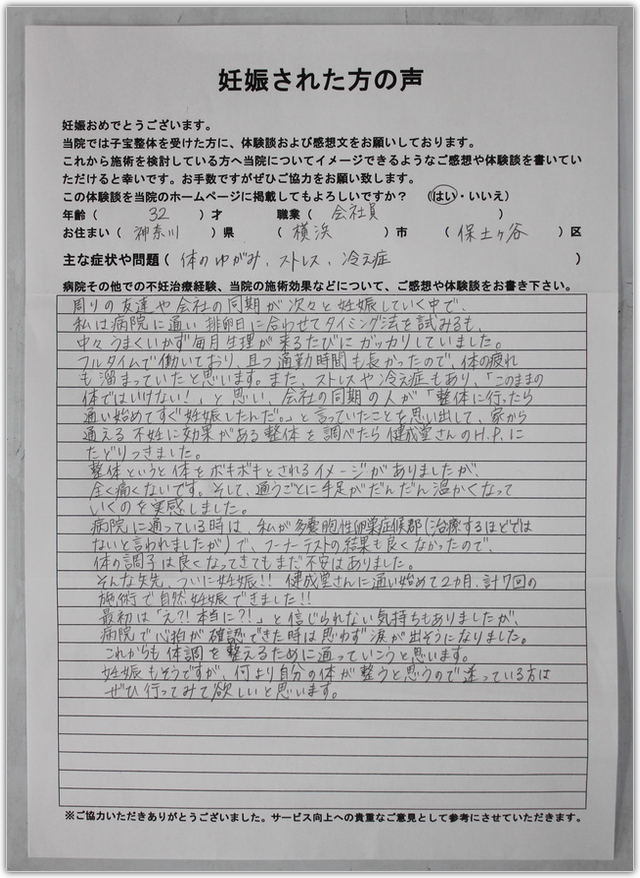 妊娠された方の声
妊娠おめでとうございます。
当院では子宝整体を受けた方に、体験談および感想文をお願いしております。
これから施術を検討している方へ当院についてイメージできるようなご感想や体験談を書いてい
ただけると幸いです。お手数ですがぜひご協力をお願い致します。
この体験談を当院のホームページに掲載してもよろしいですか？ （はい・いいえ）
年齢（ 32 ）才 職業（ 会社員 ）
お住まい（ 神奈川 ）県 （ 横浜 ）市 （ 保土ヶ谷 ）区
主な症状や問題（ 体のゆがみ、ストレス、冷え症 ）
病院その他での不妊治療経験、当院の施術効果などについて、ご感想や体験談をお書き下さい。
周りの友達や会社の同期が次々と妊娠していく中で、
私は病院に通い排卵日に合わせてタイミング法を試みるも、
中々うまくいかず毎月生理が来るたびにガッカリしていました。
フルタイムで働いており、且つ通勤時間も長かったので、体の疲れ
も溜まっていたと思います。また、ストレスや冷え症もあり、「このままの
体ではいけない！」と思い、会社の同期の人が「整体に行ったら
通い始めてすぐ妊娠したんだ。」と言っていたことを思い出して、家から
通える不妊に効果がある整体を調べたら健成堂さんのH.P.に
たどりつきました。
整体というと体をボキボキとされるイメージがありましたが、
全く痛くないです。そして、通うごとに手足がだんだん温かくなって
いくのを実感しました。
病院に通っている時は、私が多嚢胞性卵巣症候郡（治療するほどでは
ないと言われましたが）で、フーナーテストの結果も良くなかったので、
体の調子は良くなってきてもまだ不安はありました。
そんな矢先、ついに妊娠！！ 健成堂さんに通い始めて2カ月、計7回の
施術で自然妊娠できました！！
最初は「え？！本当に？！」と信じられない気持ちもありましたが、
病院で心拍が確認できた時は思わず涙が出そうになりました。
これからも体調を整えるために通っていこうと思います。
妊娠もそうですが、何より自分の体が整うと思うので迷っている方は
ぜひ行ってみて欲しいと思います。
※ご協力いただきありがとうございました。サービス向上への貴重なご意見として参考にさせていただきます。